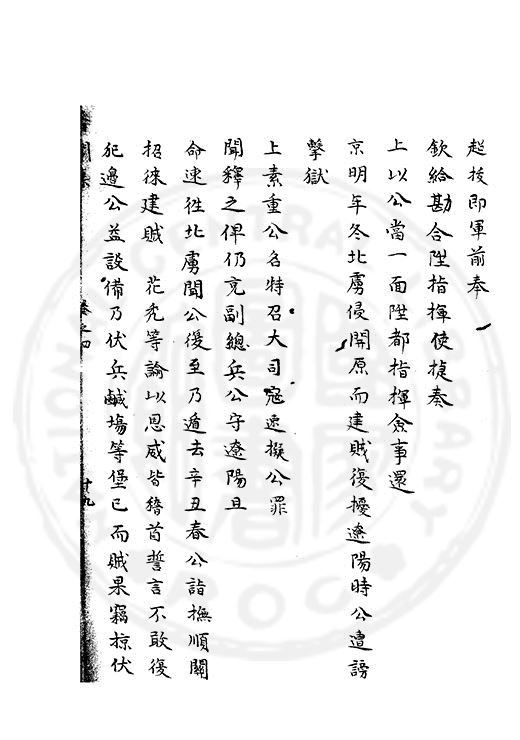 超授即軍前奉
欽給勘合陞指揮使捷奏
上以公當一面陞都指揮僉事還
京明年冬北虜侵開原而建賊復擾遼陽時公遭謗
擊獄
上素重公名特召大司寇速擬公罪
聞釋之俾仍充副總兵公守遼陽且
命速往北虜聞公復至乃遁去辛丑春公詣撫順關
招徠建賊 花禿等諭以恩威皆稽首誓言不敢復
犯邊公益設備乃伏兵鹹場等堡已而賊果竊掠伏
卷之四
十九